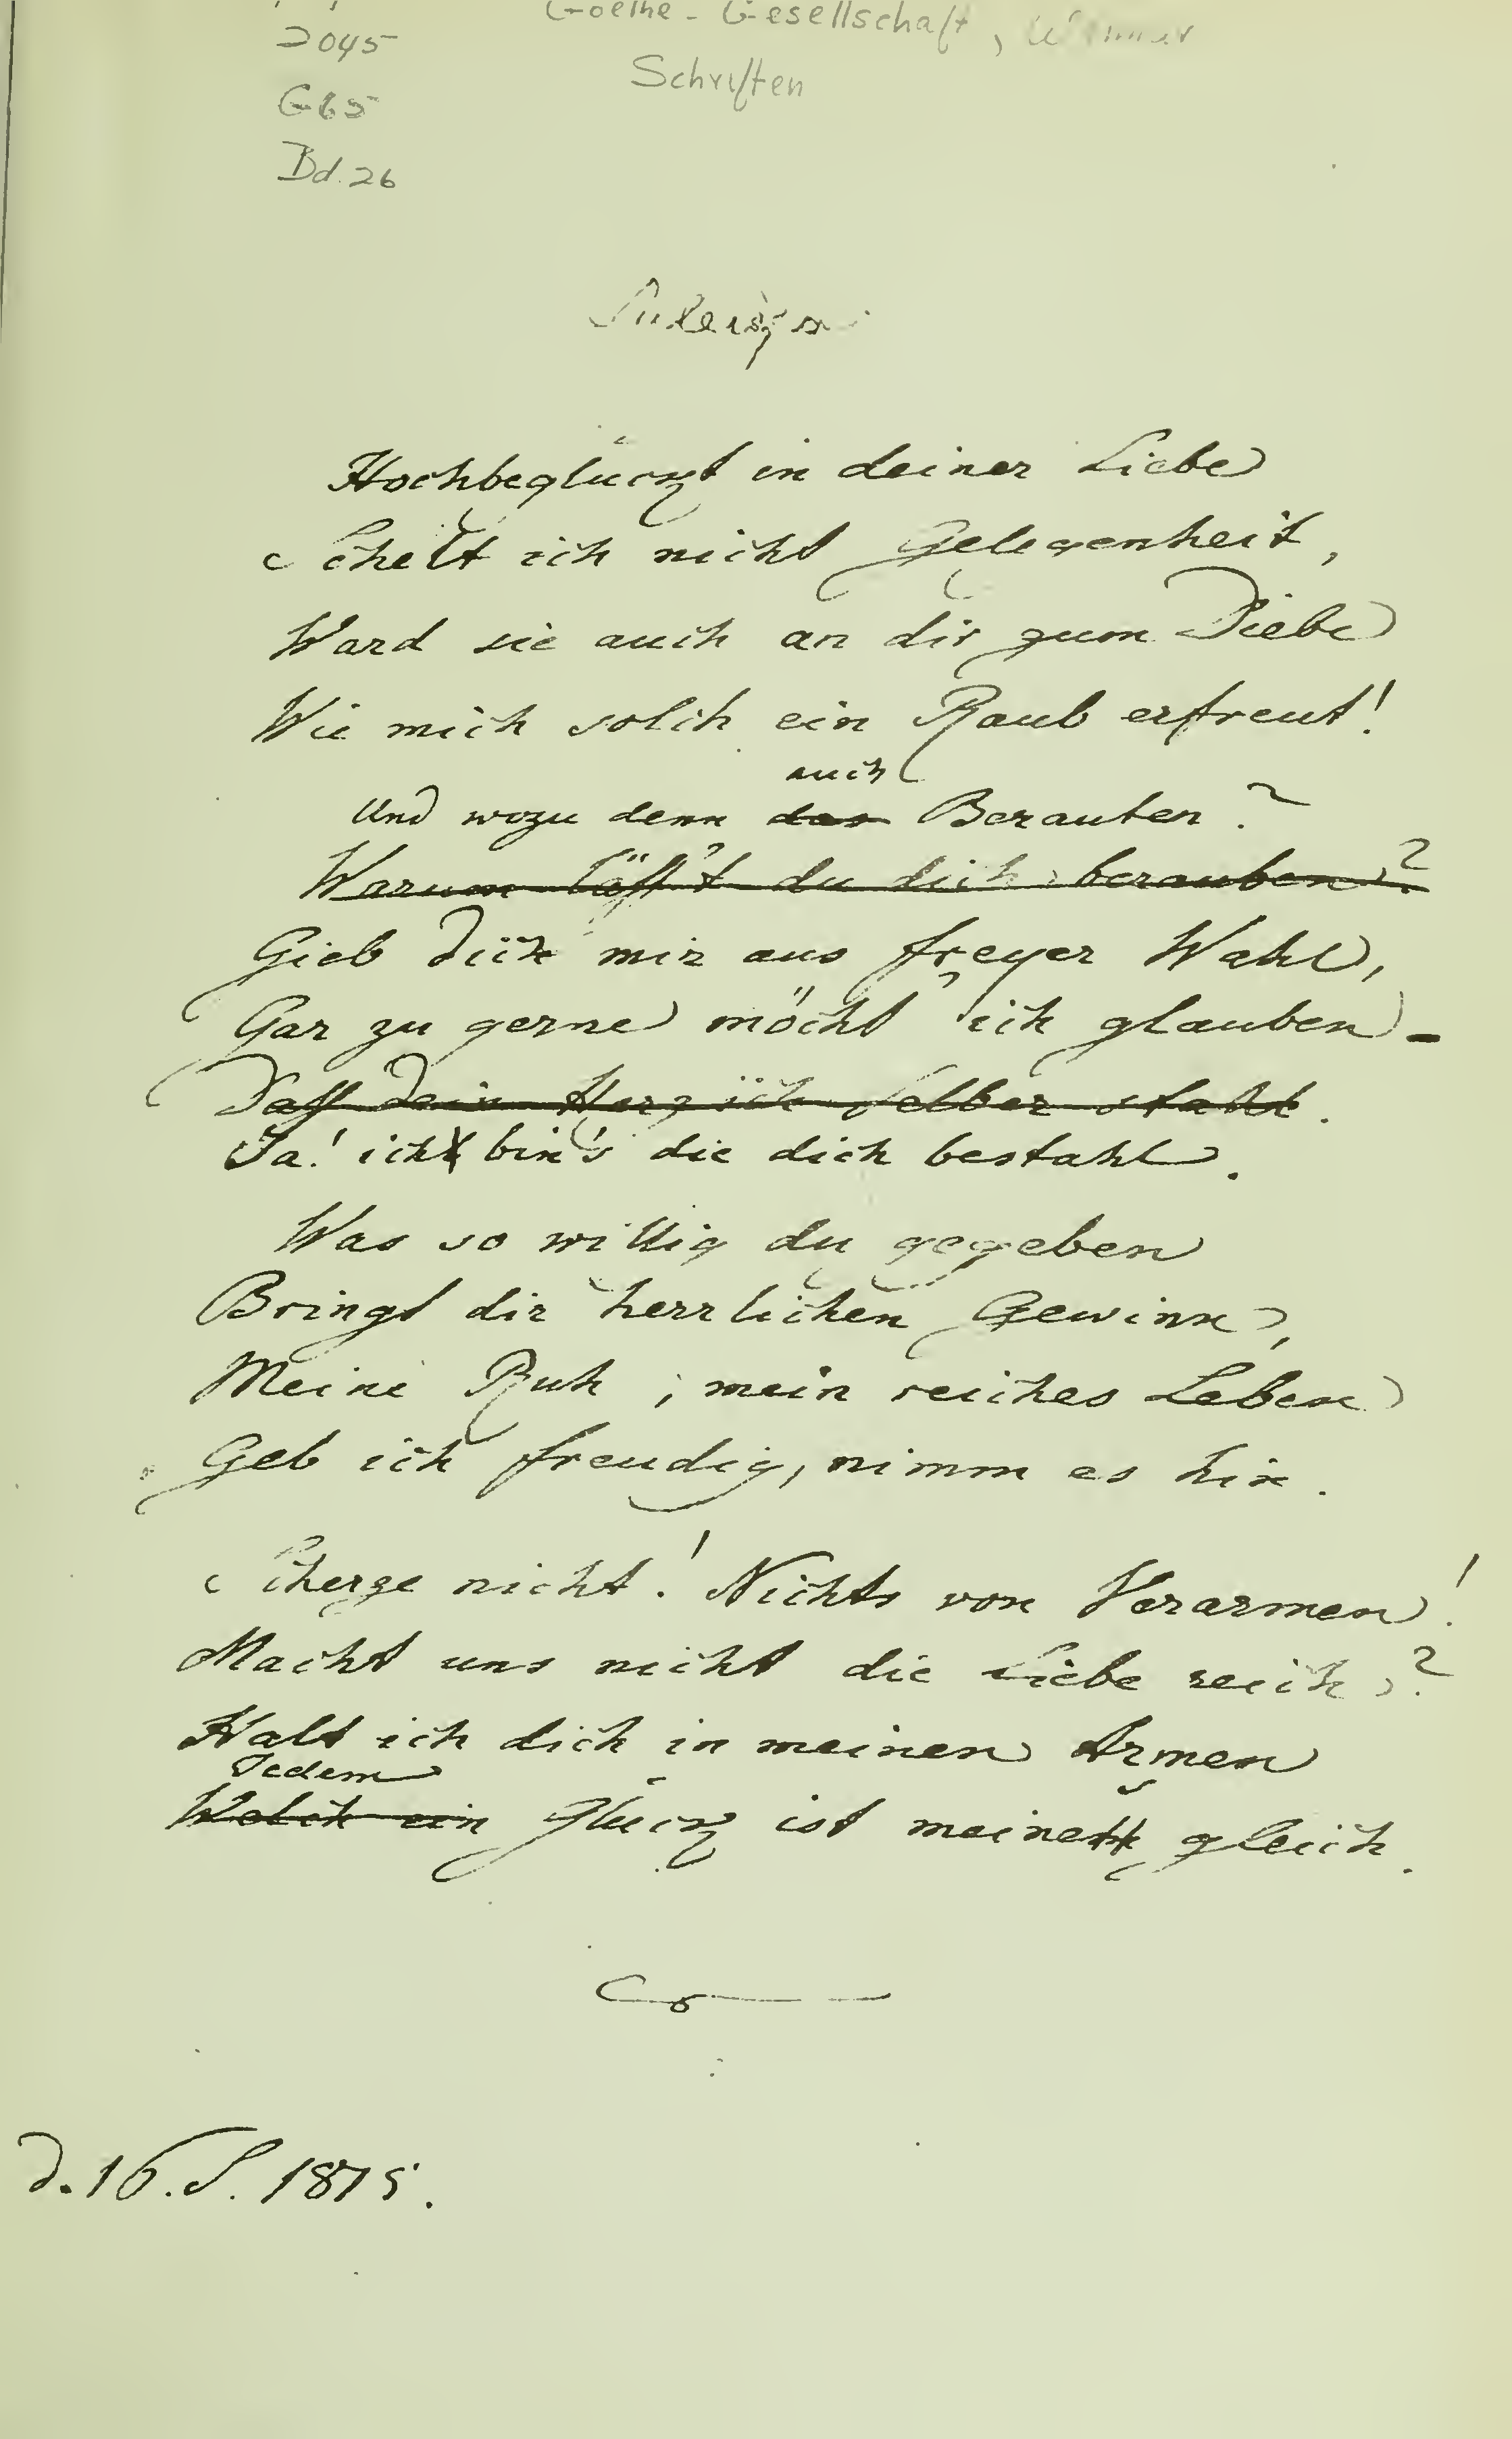 2045
G65
Bd. 26
Goethe-Gesellschaft, Weimar
Schriften
Suleika
Hochbeglückt in deiner Liebe
Schelt ich nicht Gelegenheit,
Ward sie auch an dir zum Diebe
Wie mich solch ein Raub erfreut!
auch
Und wozu denn das Berauben?
Warum läss't du dich berauben?
Gieb dich mir aus freyer Wahl,
Gar zu gerne möcht ich glauben -
Dass dein Herz ich selber stahl.
Ja! ich bin's die dich bestahl.
Was so willig du gegeben
Bringt dir herrlichen Gewinn,
Meine Ruh, mein reiches Leben
Geb ich freudig, nimm es hin.
Scherze nicht! Nichts von Verarmen!
Macht uns nicht die Liebe reich?
Halt ich dich in meinen Armen
Jedem
Welch ein Glück ist meines gleich.
d. 16. S. 1815.